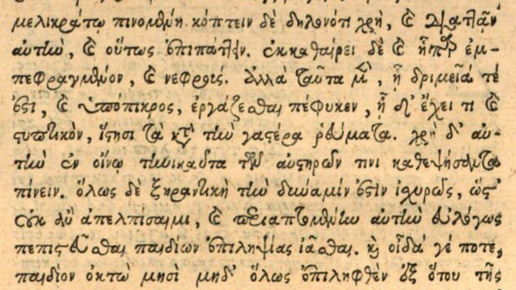 μελικράτῳ πινομένη. κόπτειν δὲ δηλονότι χρὴ, καὶ διαττᾶν
αὐτὴν, καὶ οὕτως ἐπιπάττειν. ἐκκαθαίρει δὲ καὶ ἧπαρ ἐμ-
πεφραγμένον, καὶ νεφροὺς. ἀλλὰ ταῦτα μὲν, ᾗ δριμεῖά τέ
ἐστι, καὶ ὑπόπικρος, ἐργάζεσθαι πέφυκεν, ᾗ δ' ἔχει τι καὶ
στυπτικὸν, ἵστησι τὰ κατὰ τὴν γαστέρα ῥεύματα. χρὴ δ' αὐ-
τὴν ἐν οἴνῳ τηνικαῦτα τῶν αὐστηρῶν τινι καθεψήσαντα
πίνειν. ὅλως δὲ ξηραντικὴ τὴν δύναμίν ἐστιν ἰσχυρῶς, ὡς
οὐκ ἂν ἀπελπίσαιμι, καὶ περιαπτομένην αὐτὴν εὐλόγως
πεπιστεῦσθαι παιδίων ἐπιληψίας ἰᾶσθαι. καὶ οἶδά γέ ποτε,
παιδίον ὀκτὼ μησὶ μηδ' ὅλως ἐπιληφθὲν ἐξ ὅτου τῆς